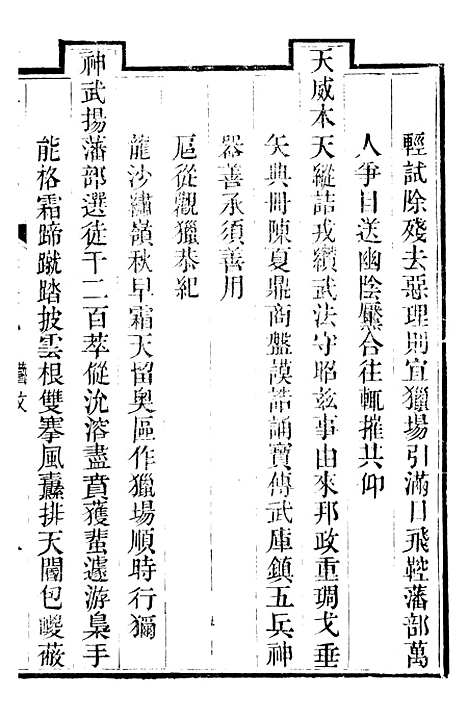 輕試除殘去惡理則宜獵場引滿日飛鞚藩部萬
人爭目送幽陰屬合往輒摧共仰
天威本天縱詰戎纘武法守昭兹事由來邦政重琱戈垂
矢典冊陳夏鼎商盤謨誥誦寶傳武庫鎮五兵神
器善承須善用
扈從觀獵恭紀
龍沙繡嶺秋早霜天留奧區作獵場順時行獮
神武揚藩部選徒千二百萃傱沇溶盡賁獲蜚遽游梟手
能格霜蹄蹴踏披雲根雙搴風纛排天閶包㚇蔽
藝文